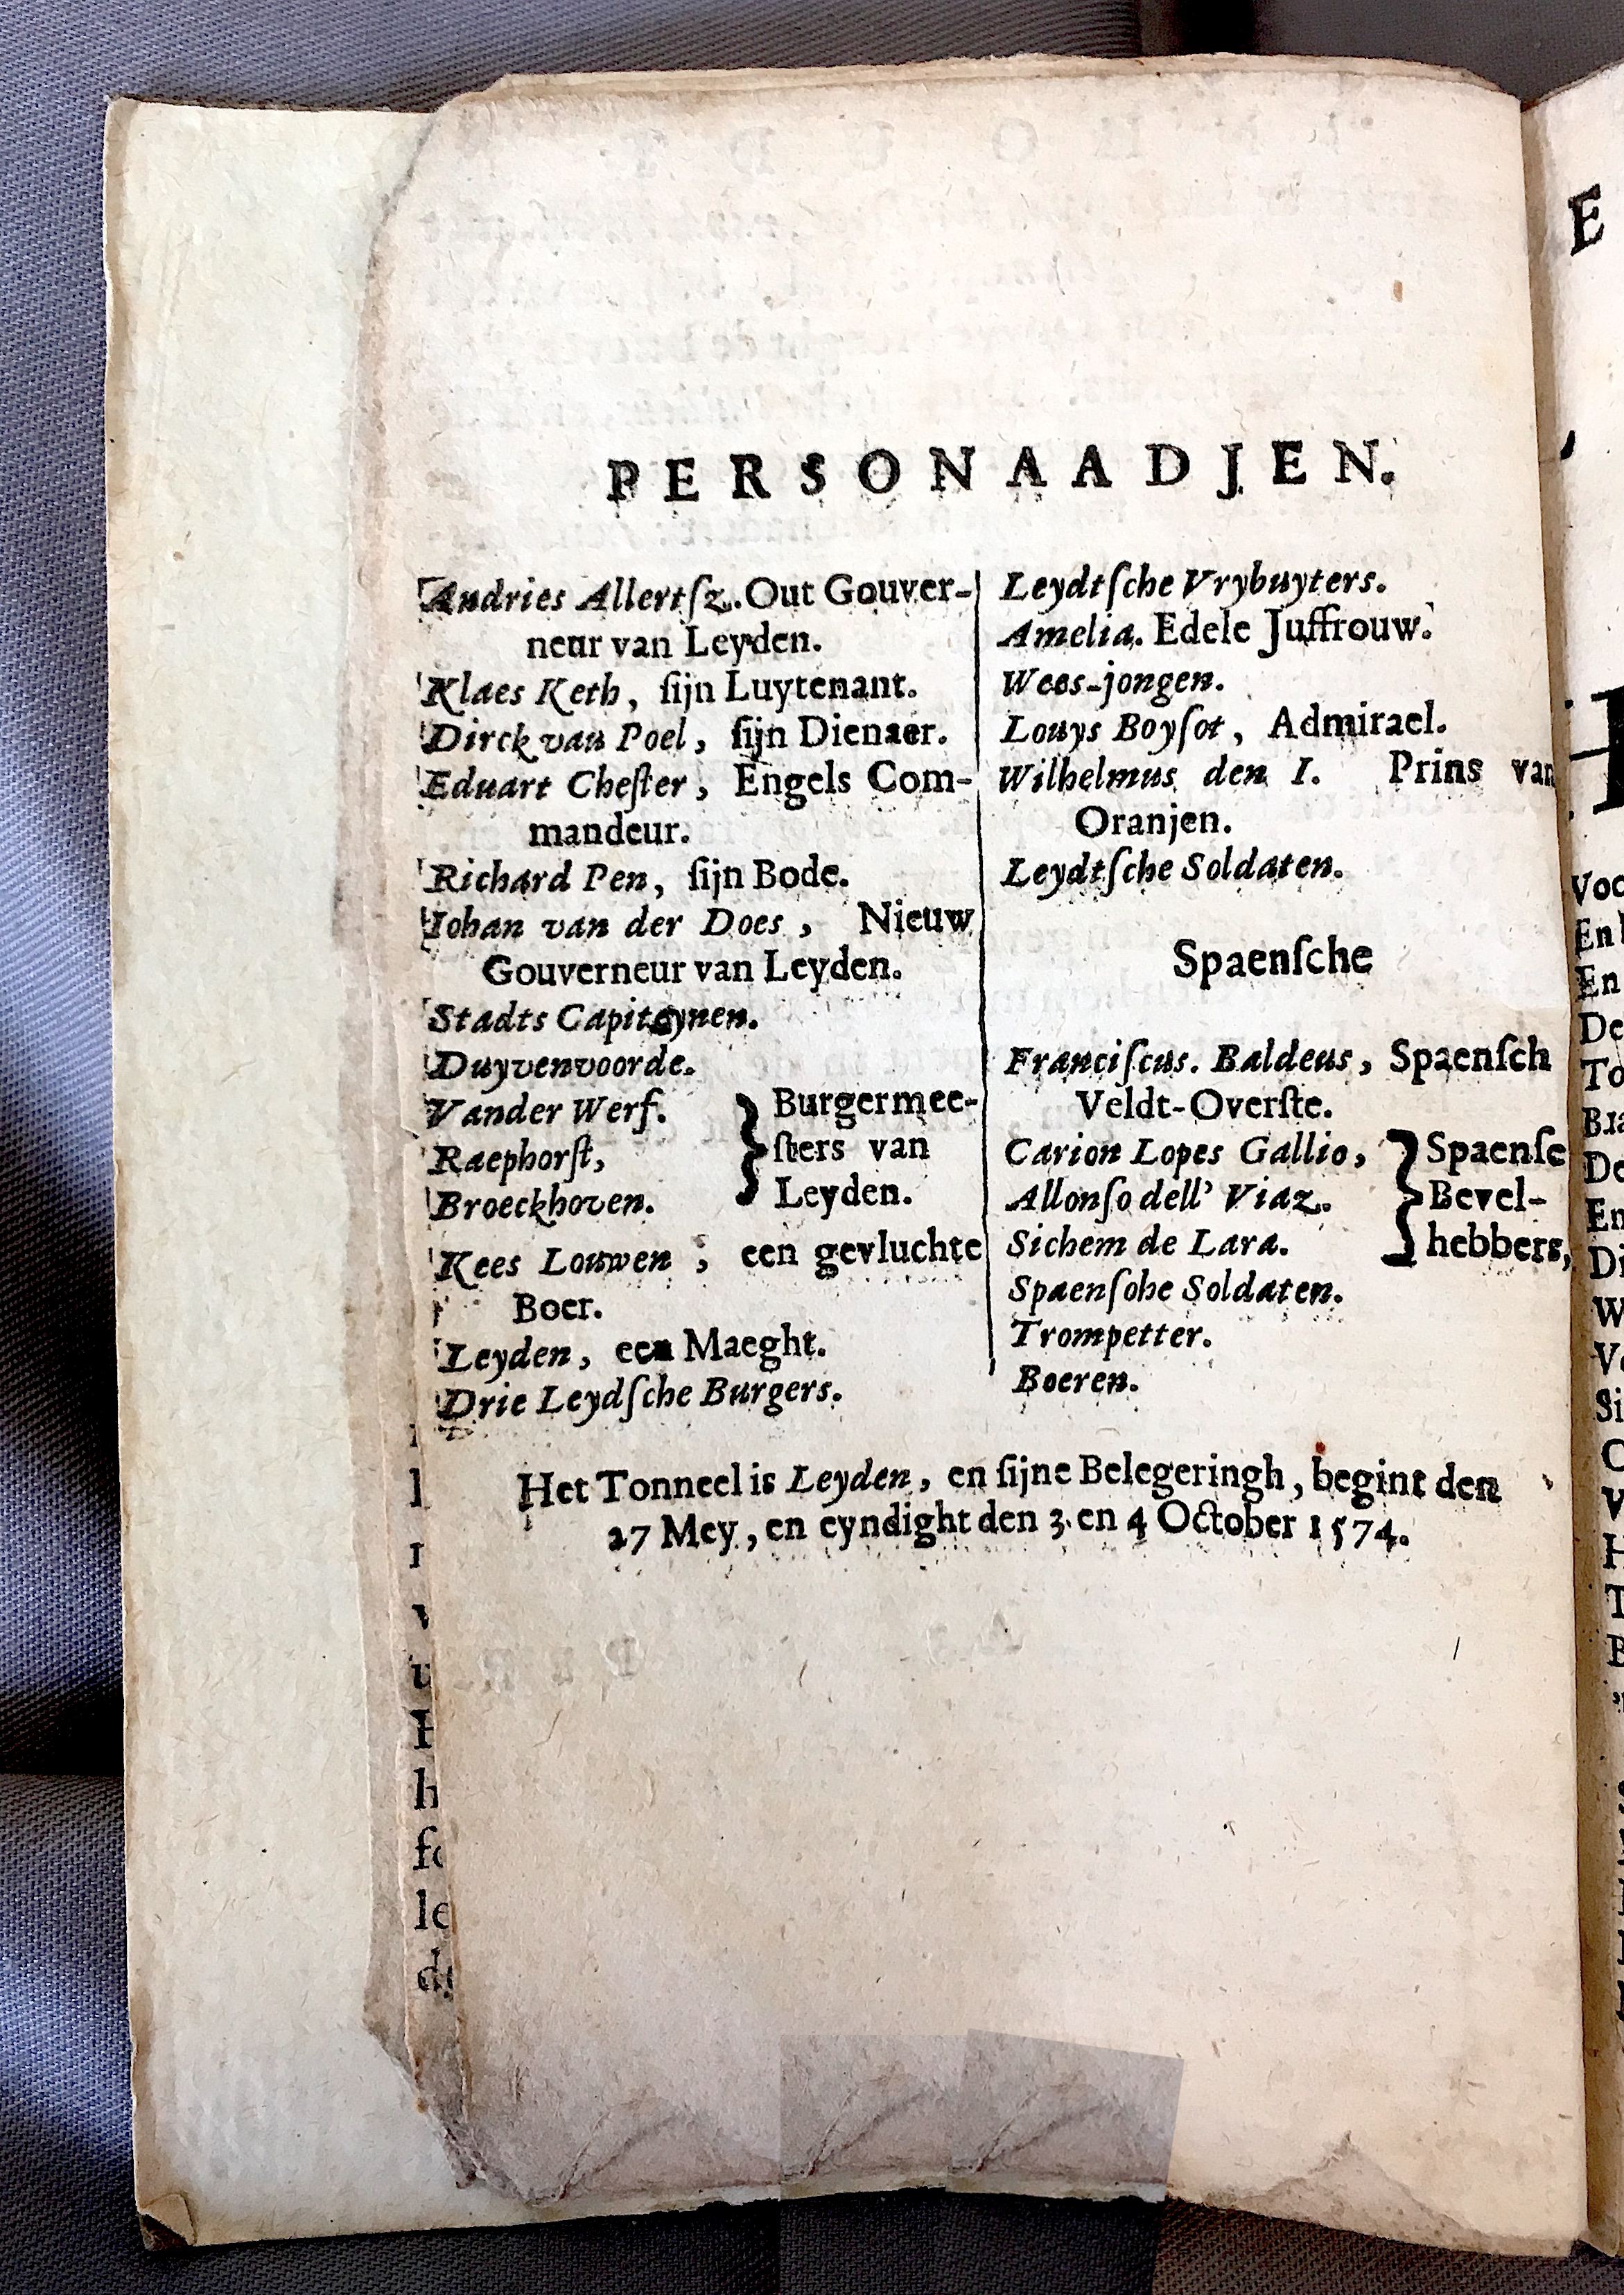 PERSONAADJEN.
Andries Allertſz. Out Gouver-
neur van Leyden.
Klaes Keth, ſijn Luytenant.
Dirck van Poel, ſijn Dienaer.
Eduart Cheſter, Engels Com-
mandeur.
Richard Pen, ſijn Bode.
Iohan van der Does, Nieuw
Gouverneur van Leyden.
Stadts Capitaynen.
Duyvenvoorde.
Vander Werf.
Raephorſt,
Broeckhoven.
Burgermee-
ſters van
Leyden.
Kees Louwen, een gevluchte
Boer.
Leyden, een Maeght.
Drie Leydſche Burgers.
Leydtſche Vrybuyters.
Amelia. Edele Juffrouw.
Wees-jongen.
Louys Boyſot, Admirael.
Wilhelmus den I. Prins van
Oranjen.
Leydtſche Soldaten.
Spaenſche
Franciſcus. Baldeus, Spaenſch
Veldt-Overſte.
Carion Lopes Gallio,
Allonſo dell' Viaz.
Sichem de Lara.
Spaenſe
Bevel-
hebbers,
Spaenſohe Soldaten.
Trompetter.
Boeren.
Het Tonneel is Leyden, en ſijne Belegeringh, begint den
27 Mey, en eyndight den 3 en 4 October 1574.